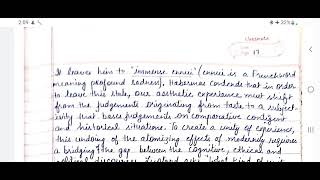 2:09
22%
classmate
17
It leaves him to "immense ennui" (ennui is a French word
meaning profound sadness). Habermas contends that in order
to leave this state, our aesthetic experience must shift
from the judgements originating from taste to a subject-
ivity that bases judgements on comparative contigent
and historical situations. To create a unity of experience,
this undoing of the atomizing effects of modernity requires
a bridging the gap between the cognitive, ethical and
political discourses. Lyotard asks "what kind of unit